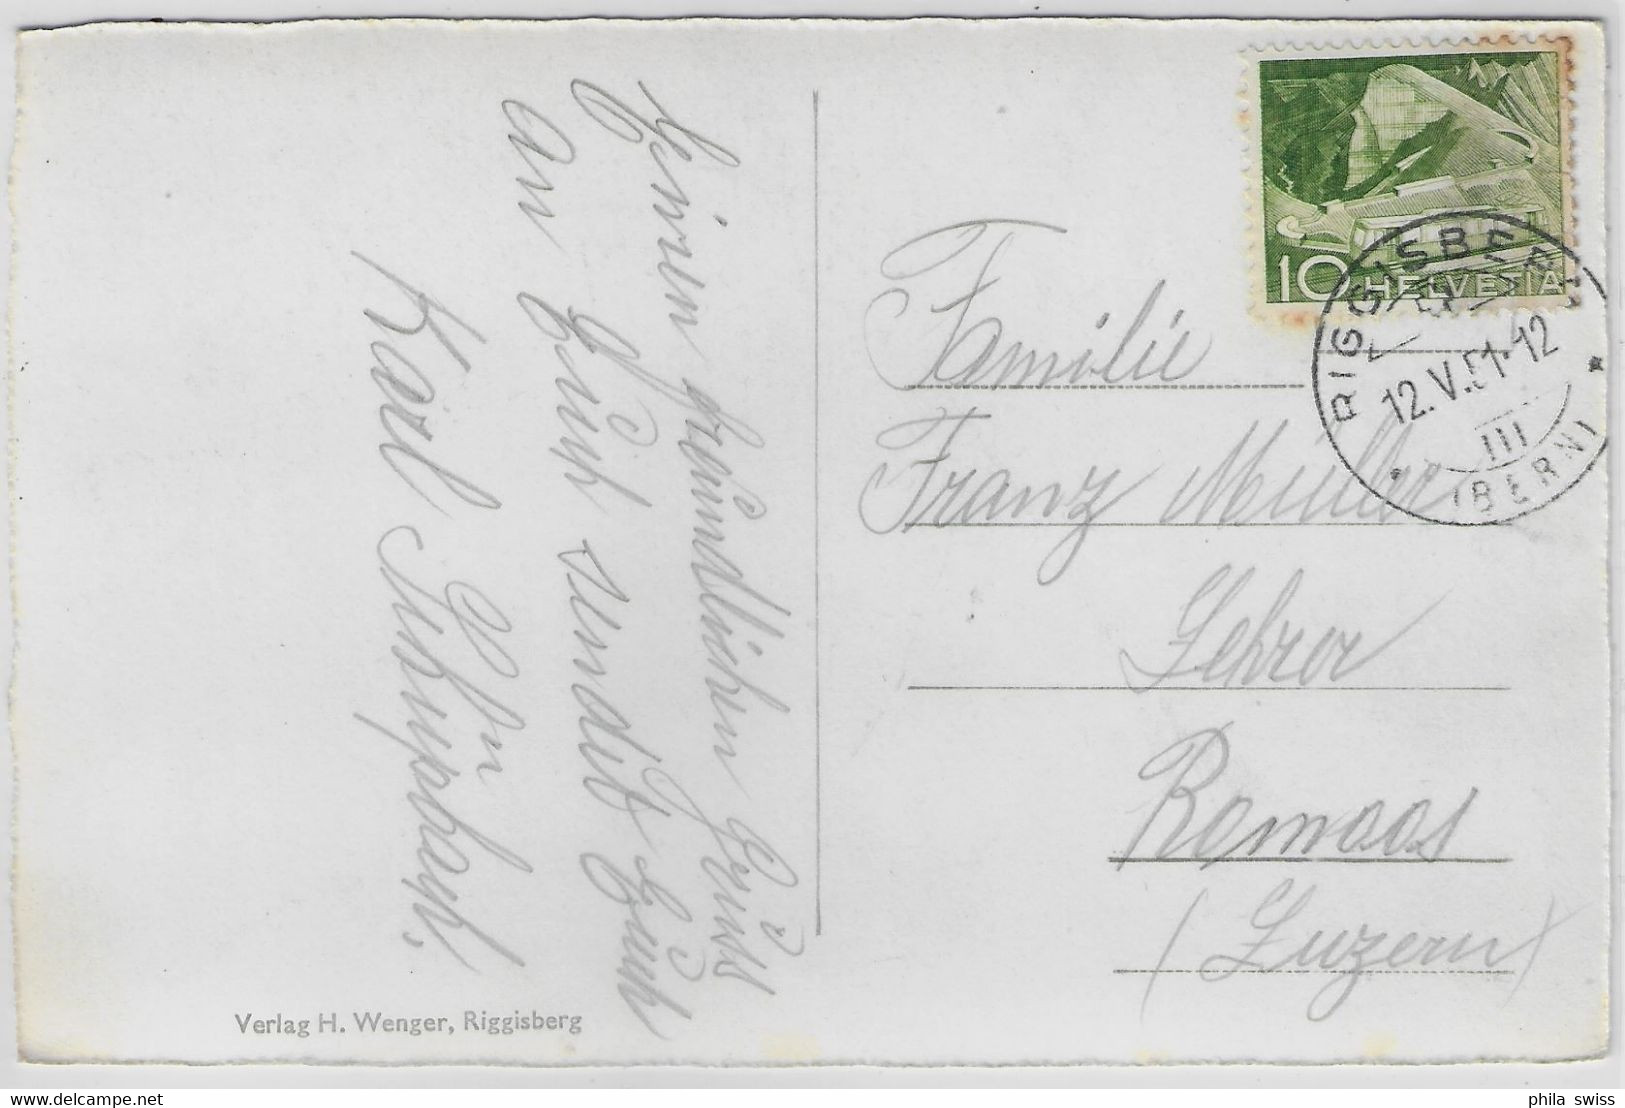 Einen freundlichen Gruss
an Euch sendet Euch
Karl
10 HELVETIA
RIGGISBERG
12.V.51.12
III
(BERN)
Familie
Franz Müller
Lehrer
Romoos
(Luzern)
Verlag H. Wenger, Riggisberg
phila swiss
delcampe.net